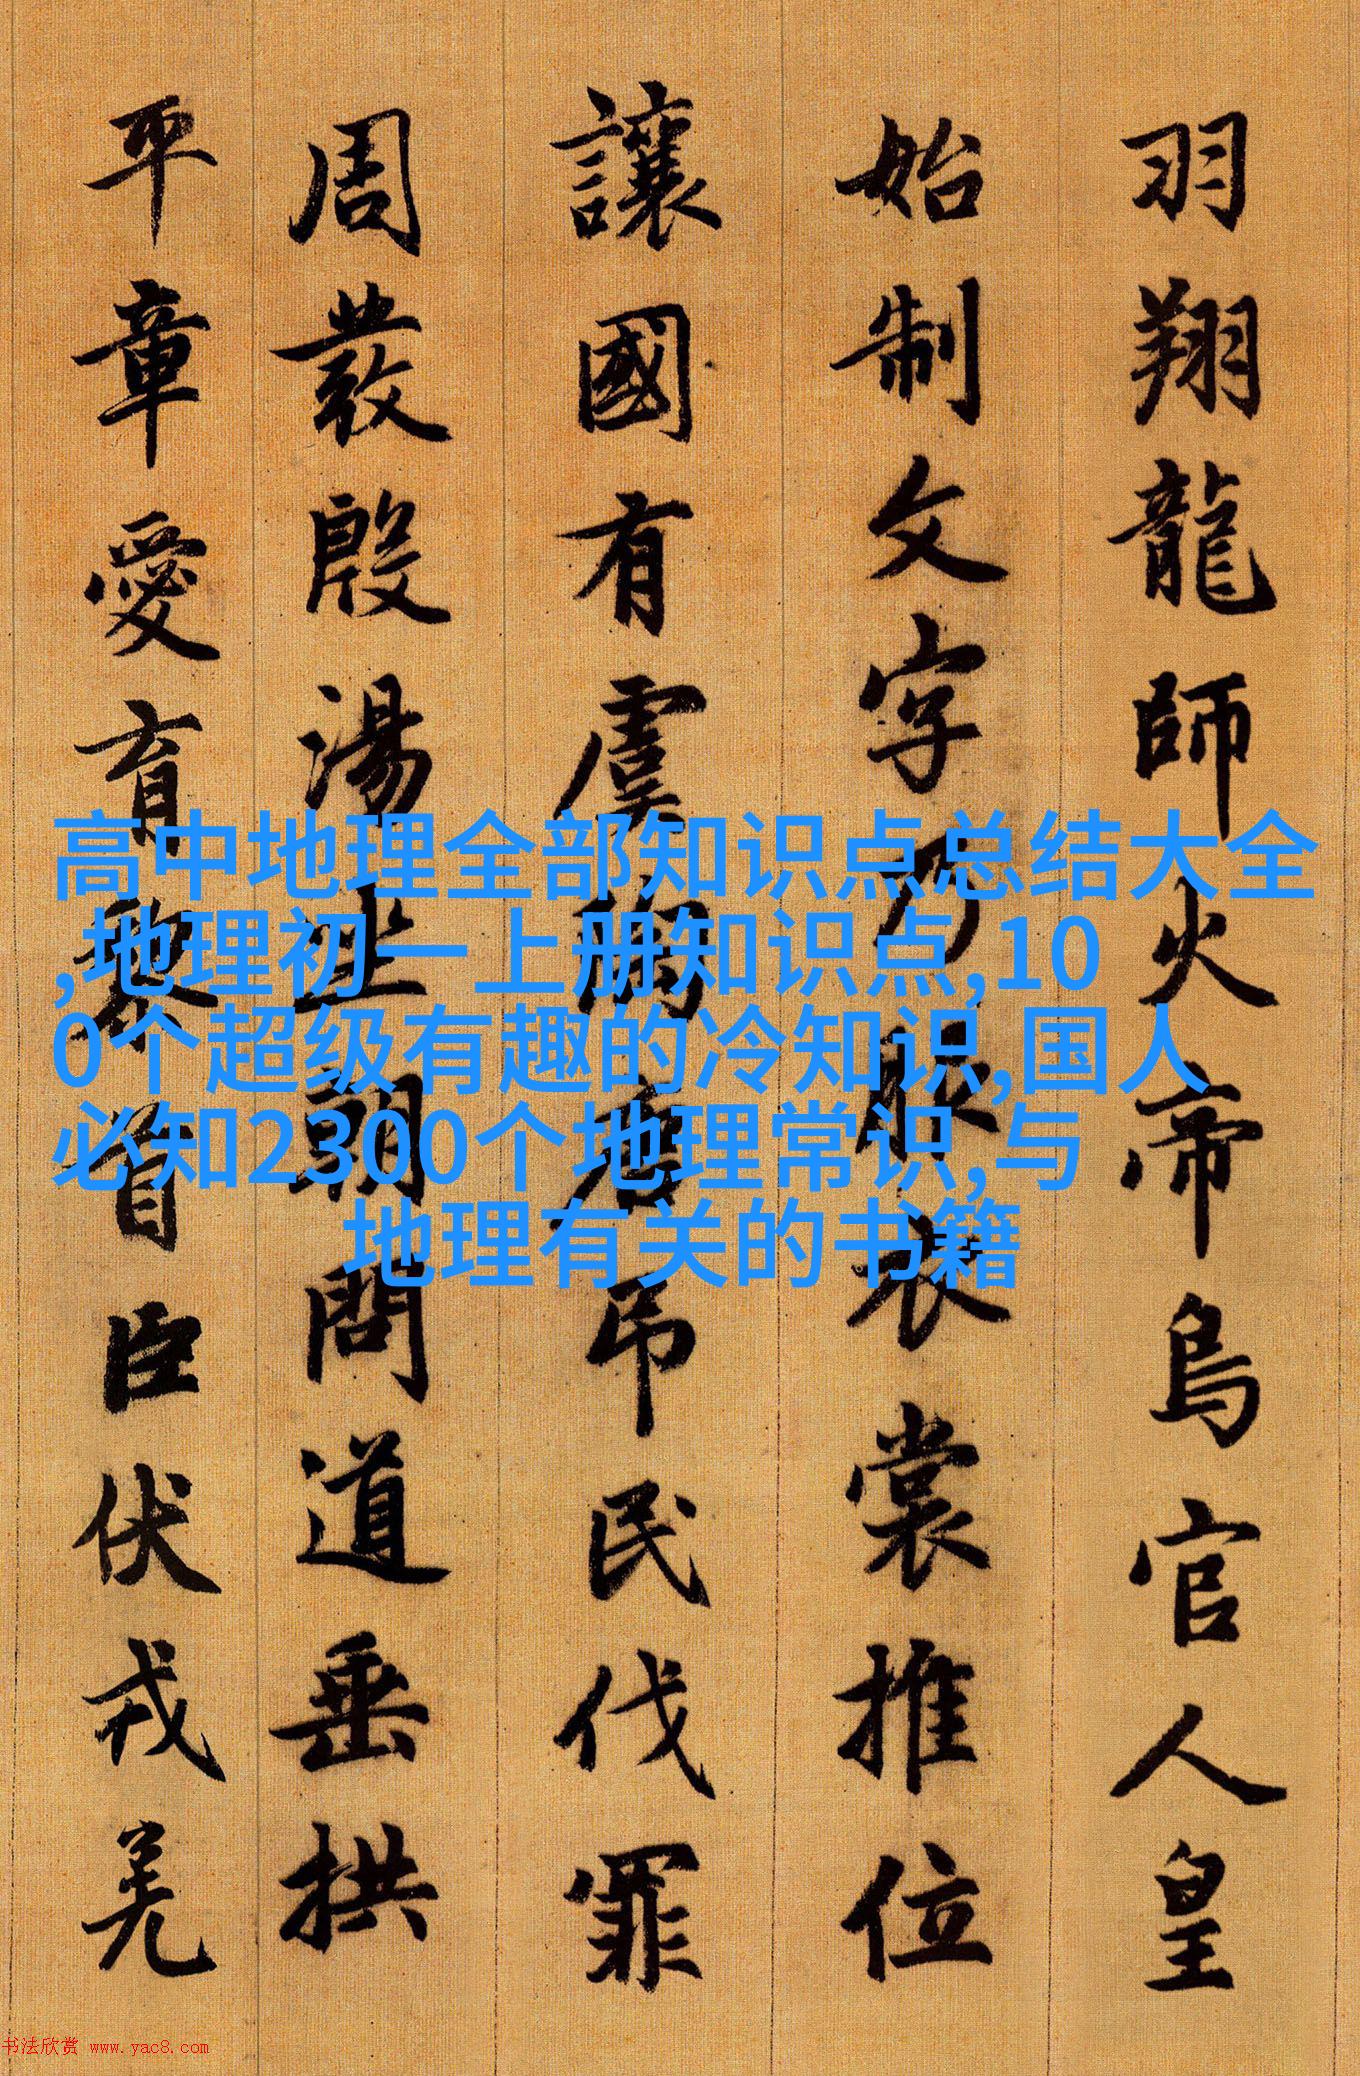 羽翔龍師火帝鳥官人皇
始制文字乃服衣裳推位
讓國有虞陶唐弔民伐罪
周發殷湯坐朝問道垂拱
平章愛育黎首臣伏戎羌
高中地理全部知识点总结大全
,地理初一上册知识点,10
0个超级有趣的冷知识,国人
必知2300个地理常识,与
地理有关的书籍
书法欣赏 www.yac8.com